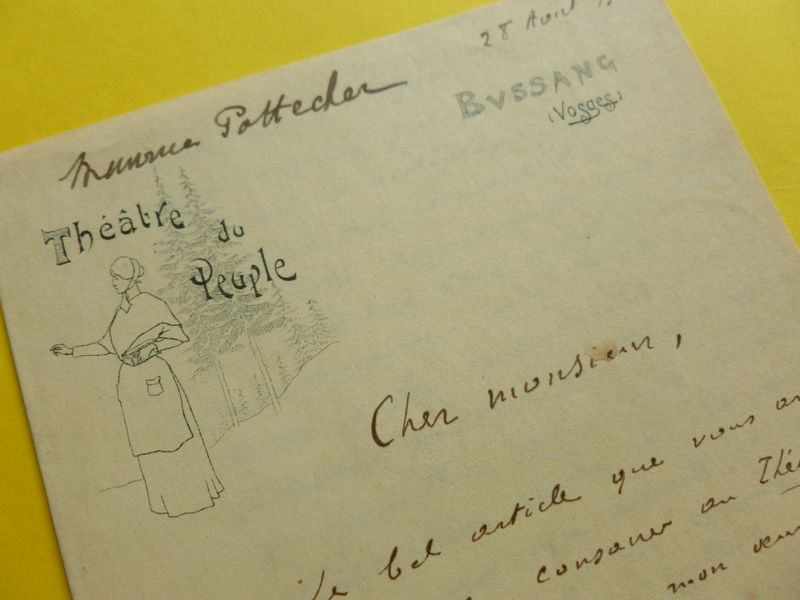 28 Août
Maurice Pottecher
BUSSANG
(Vosges)
Théâtre du
Peuple
Cher monsieur,
le bel article que vous
consacrer au Thé
mon